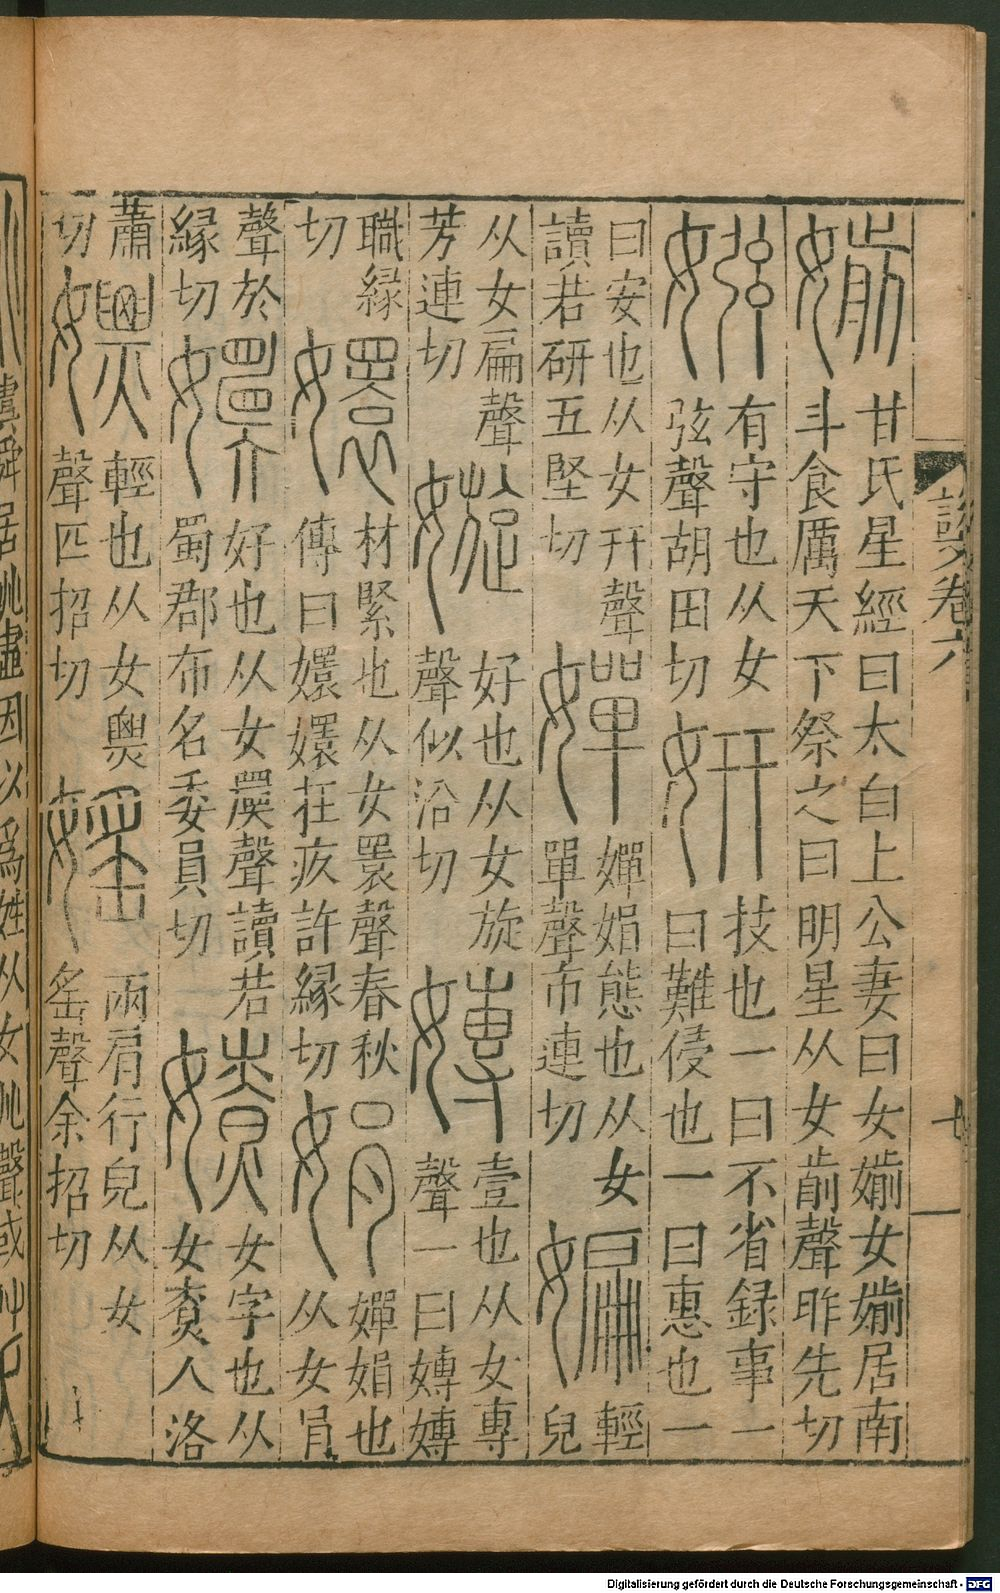 說文卷六
七
媊
甘氏星經曰太白上公妻曰女媊女媊居南
斗食厲天下祭之曰明星从女前聲昨先切
娹
有守也从女
弦聲胡田切
姸
技也一曰不省録事一
曰難侵也一曰惠也一
曰安也从女幵聲
讀若研五堅切
嬋
嬋娟態也从女
單聲市連切
媥
輕
皃
从女扁聲
芳連切
嫙
好也从女旋
聲似沿切
嫥
壹也从女專
聲一曰嫥嫥
職緣
切
嬛
材緊也从女睘聲春秋
傳曰嬛嬛在疚許緣切
娟
嬋娟也
从女肙
聲於
緣切
好也从女聲讀若
蜀郡布名委員切
嫽
女字也从
女尞人洛
蕭
切
嫖
輕也从女㶾
聲匹招切
媱
兩肩行皃从女
䍃聲余招切
虞舜居姚虛因以爲姓从女兆聲或
Digitalisierung gefördert durch die Deutsche Forschungsgemeinschaft - DFG